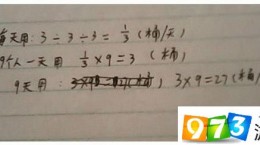 每天用：3÷3÷3=1/3（桶/天）
9个人一天用 1/3×9=3（桶）
9天用： 3×9=27（桶）
973